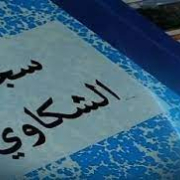 سجل
الشكاوي